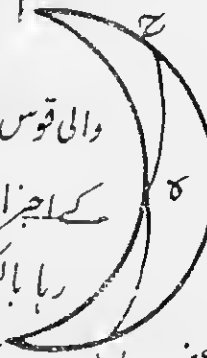 ا
ح
والی قوس
ہ
کے اجزا
رہا بالک